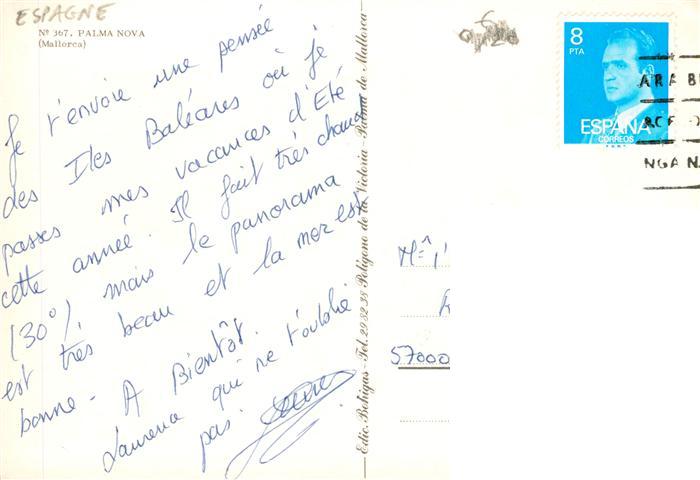 ESPAGNE
Nº 367. PALMA NOVA
(Mallorca)
Je t'envoie une pensée
des Iles Baléares où je
passes mes vacances d'Eté
cette année. Il fait très chaud
(30°), mais le panorama
est très beau et la mer est
bonne - A Bientôt.
Laurence qui ne t'oublie
pas.
Edic. Bohigas - Tel. 29 32 38 Polígono de la Victoria - Palma de Mallorca
8
PTA
ESPAÑA
CORREOS
ARA B
NGA N
57000